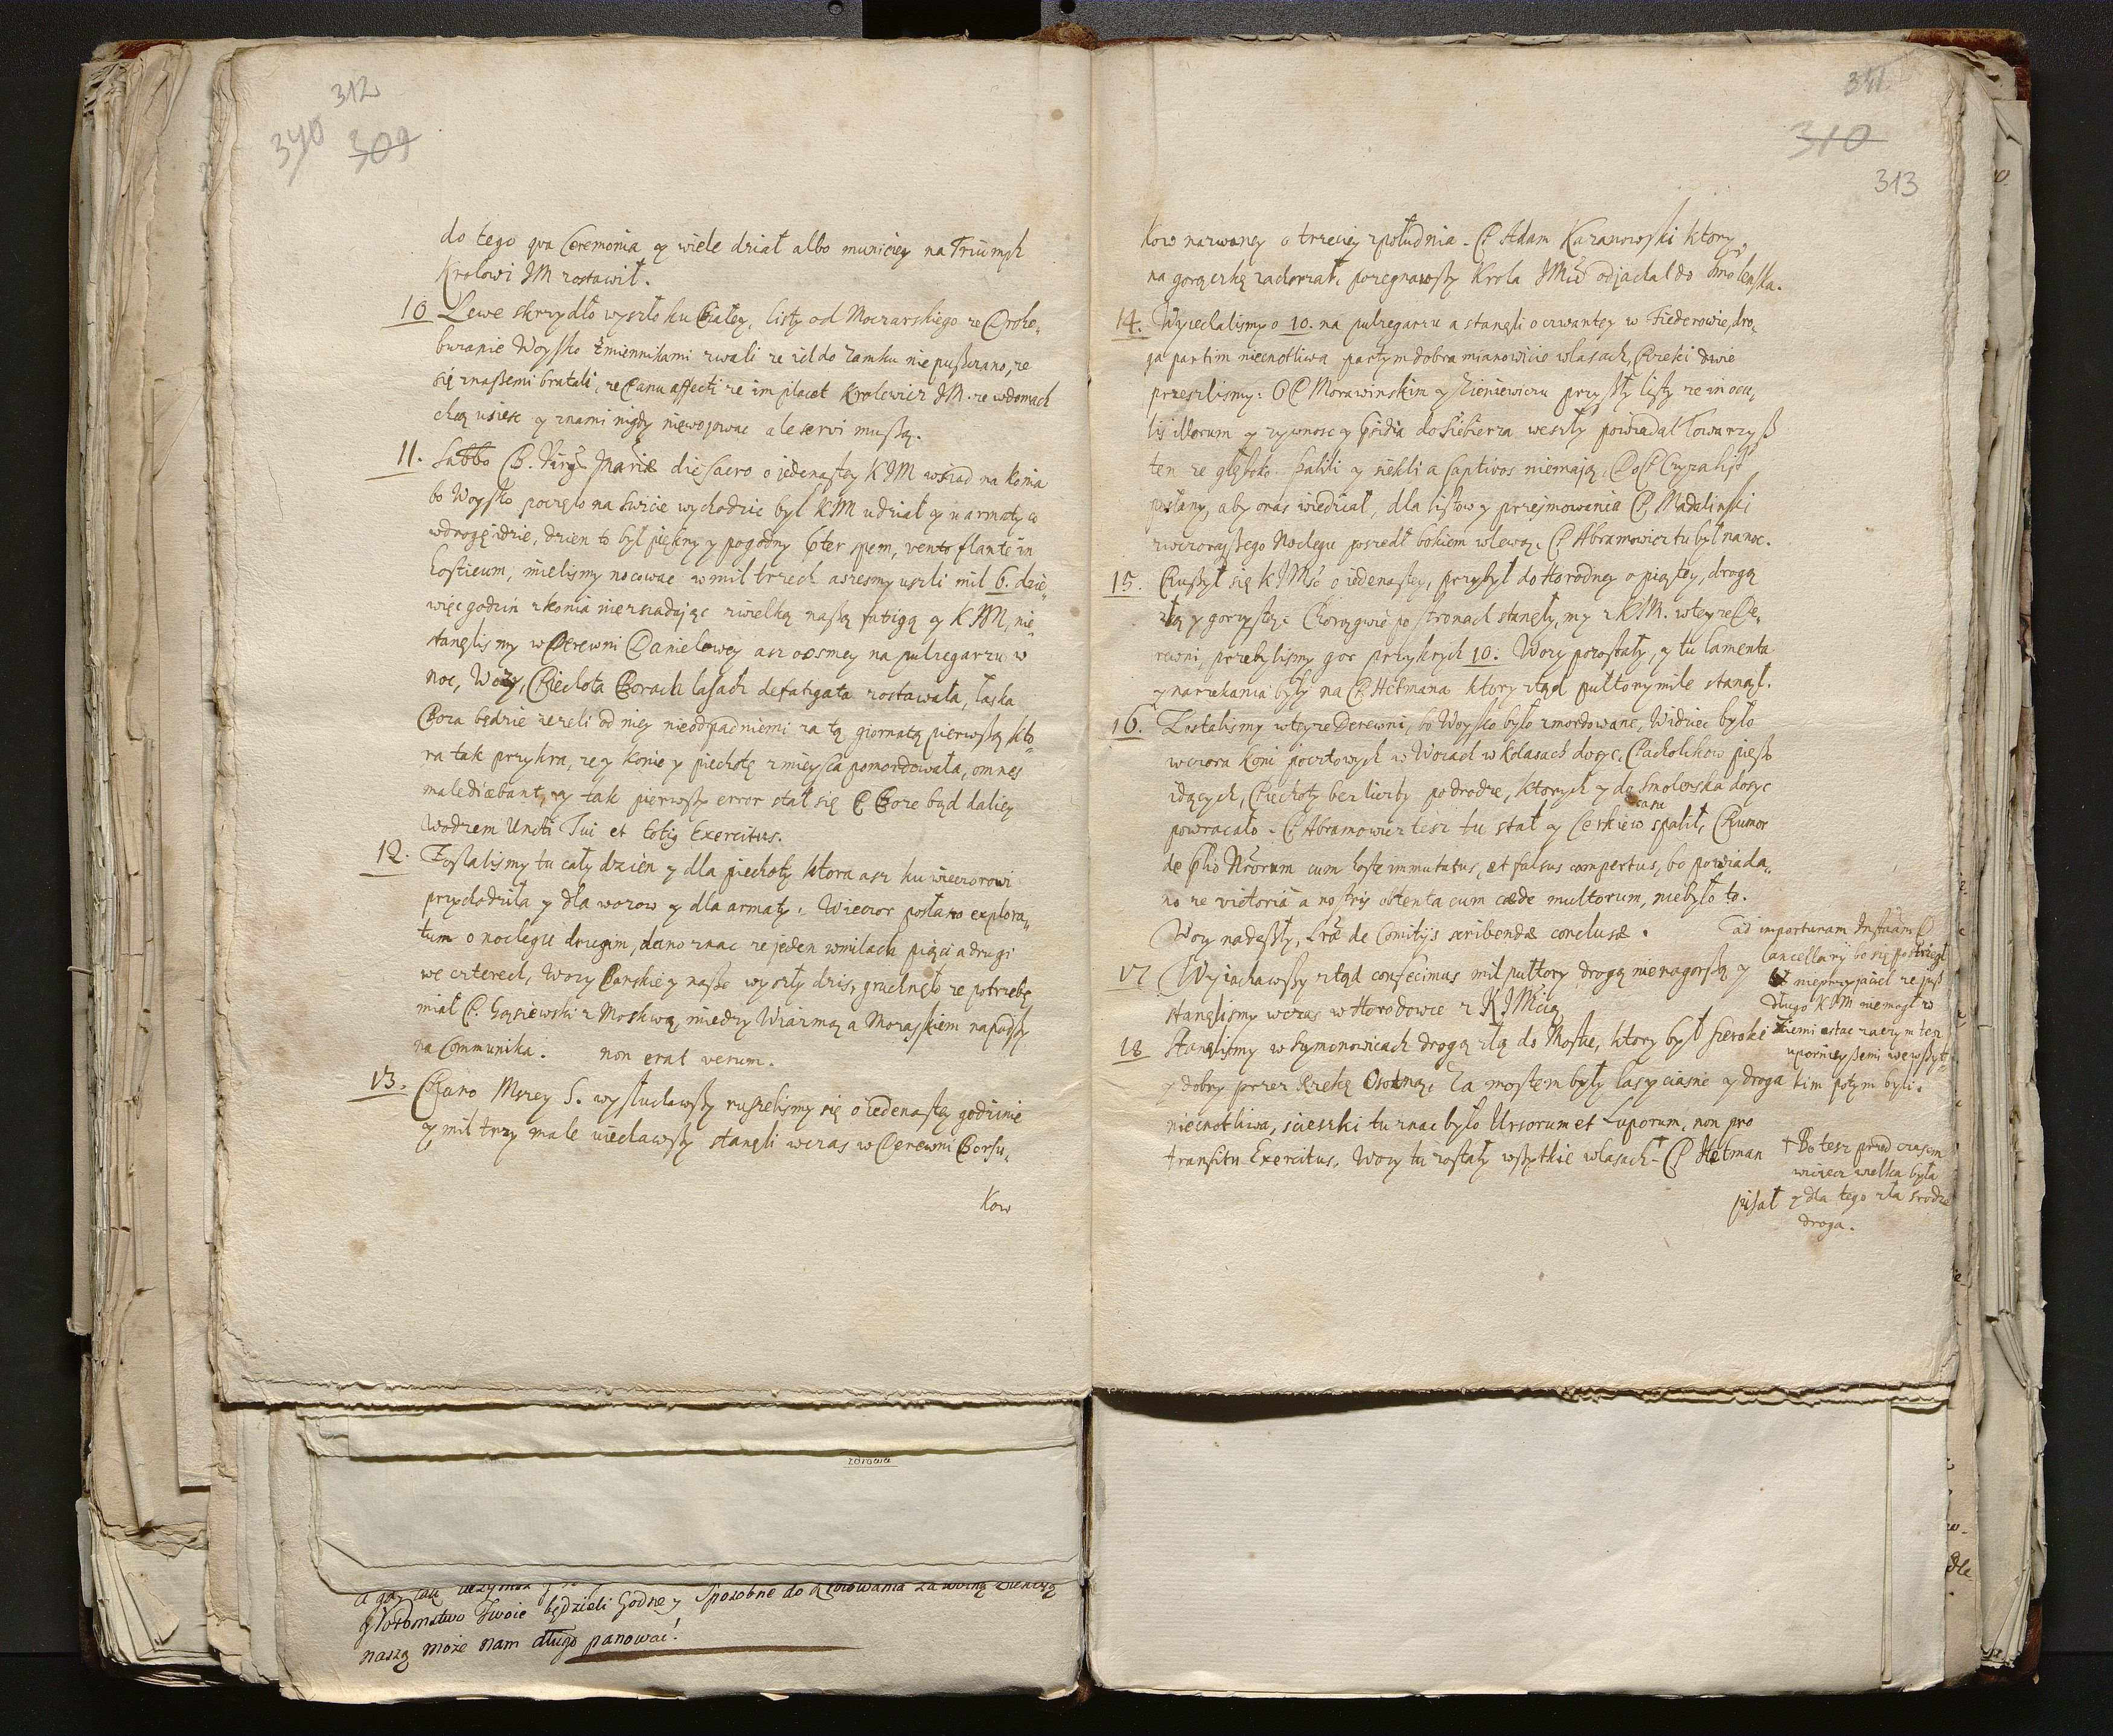 312
340 309
do tego qva Ceremonia y wiele dział albo municiey na Triumph
Krolowi JM zostawił.
10 Lewe skrzydło wyszło ku Białey, listy od Moczarskiego ze Droho„
buzanie Woysko zmiennikami zwali ze ich do zamku nie pusczano, ze
się znaßemi bratali, ze Panu affecti ze im placet Krolewicz JM. ze w domach
chcą usiesc y znami nigdy niewojowac ale servi mußą.
11. Sabbo B. Virg. Mariæ die sacro o iedenastey KJM wsiad na konia
bo Woysko poczęło na swicie wychodzic był KJM udział y u armaty co
w drogę idzie, dzien to był piękny y pogodny pter spem, vento flante in
hosticum, mielismy nocowac w mil trzech aszesmy uszli mil 6. dzie„
więc godzin z konia niezsiadając z wielką naßą fatigą y KJM, nie„
stanęlismy w Derewni Danielowey asz o osmey na pulzegarzu w
noc, Wozy, Piechota Borach lasach defatigata zostawała, łaska
Boza będzie iezeli od niey nieodpadniemi za tą giornatą pierwßą kto„
ra tak przykra, ze y konie y piechotę z mieysca pomordowała, omnes
maledicebant, y tak pierwszy error stał się P Boze bąd daliey
Wodzem Uncti Tui et totig Exercitus.
12. Zostalismy tu cały dzien y dla piechoty ktora asz ku wieczorowi
przychodziła y dla wozow y dla armaty. Wieczor posłano explora„
tum o noclegu drugim, dano znac ze jeden w milach pięci a drugi
we czterech, Wozy Panskie y naße wyszły dzis, gruchnęło ze potrzebę
miał P. Gąsiewski z Moskwą miedzy Wiazmą a Mozayskiem napadszy
na Communika. non erat verum.
13. Rano Mszey S. wysłuchawszy ruszelismy się o iedenastey godzinie
y mil trzy małe uiechawszy stanęli wczas w Derewni Borsu„
kow
341
310
313
kow nazwaney o trzeciey z południa. P Adam Kazanowski ktory
na gorączkę zachorzał, pozegnawszy Krola JMci odjachał do Smolenska.
14. Wyiechalismy o 10. na pulzegarzu a stanęli o czwartey w Fiederowie, dro„
ga partim niecnotliwa partym dobra mianowicie w lasach, Rzeki dwie
przeszlismy. O P Morawinskim y Sieniewiczu przyszły listy ze in ocu„
lis illorum y zywnosc y psidia do Siebierza weszły powiadał Towarzyß
ten ze głęboko palili y siekli a captivos niemają. Do P Czyza list
posłany, aby oras wiedział, dla listow y przejmowania P. Madalinski
z wczorayßego Noclegu poszedł bokiem w lewą. P Abramowicz tu był na noc.
15. Rußył się KJMsc o iedenastey, przybył do Horodney o piątey, drogą
złą y gorzystą. Chorągwie po stronach stanęły, my z KJM. w teyze De„
rewni, przebylismy gor przykrych 10. Wozy pozostały, y tu lamenta
y narzekania były na P Hetmana ktory ztąd pułtory mile stanął.
16. Zostalismy w teyze Derewni, bo Woysko było zmordowane, Widziec było
wczora koni pocztowych w Wozach w kolasach dosyc, Pacholikow pieszo
idących, Piechoty bez liczby po drodze, ktorych y do Smolenska dosyc
powracało. P. Abramowicz tesz tu stał y Cerkiew casu spalił, Rumor
de plio Nrorum cum hoste immutatus, et falsus compertus, bo powiada„
no ze victoria a nostris obtenta cum cæde multorum, niebyło to.
Wozy nadeßły, Lræ de Comitijs scribendæ conclusæ.
17 Wyiachawßy ztąd confecimus mil pułtory drogą nienagorßą y
stanęlismy wczas w Horodowce z KJMcią
18 Stanęlismy w Symonowicach drogą złą do Mostu, ktory był szeroki
y dobry przez Rzekę Osotną. Za mostem były lasy ciasne y droga
niecnotliwa, sciezki tu znac było Ursorum et Luporum, non pro
transitu Exercitus. Wozy tu zostały wszytkie w lasach † P Hetman
pisał
ad importunam Instaam P
Cancellarij bo się postrzegł
nieprzyjaciel ze iusz
długo KJM niemogł w
Ziemi ostac zaczym tez
upornieyßemi we wßyt„
kim potym byli.
† Bo tesz przed czasem
wicier wielka była
y dla tego zła srodze
droga.
zdrowie
y Potomstwo Twoie będzieli Godne y Sposobne do
naszą może nam długo panować!